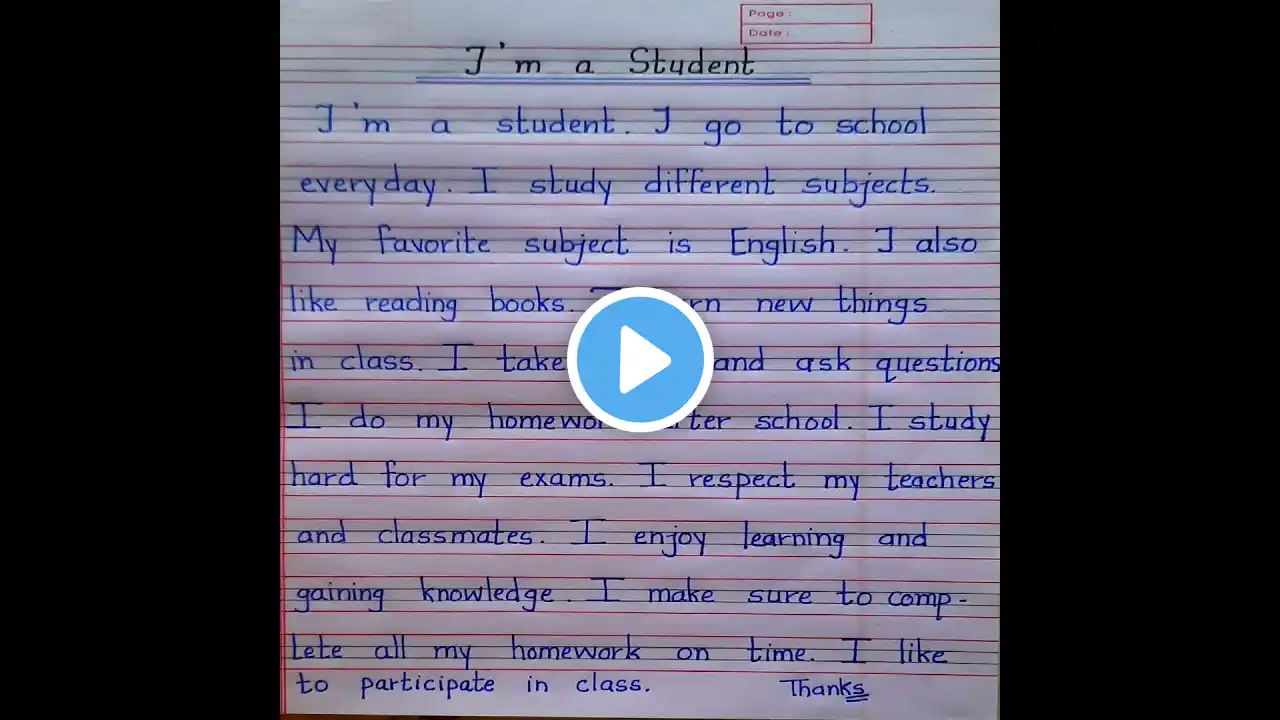 Page :
Date :
I'm a Student
I'm a student. I go to school
everyday. I study different subjects.
My favorite subject is English. I also
like reading books. new things
in class. I take and ask questions
I do my school. I study
hard for my exams. I respect my teachers
and classmates. I enjoy learning and
gaining knowledge. I make sure to comp-
lete all my homework on time. I like
to participate in class. Thanks